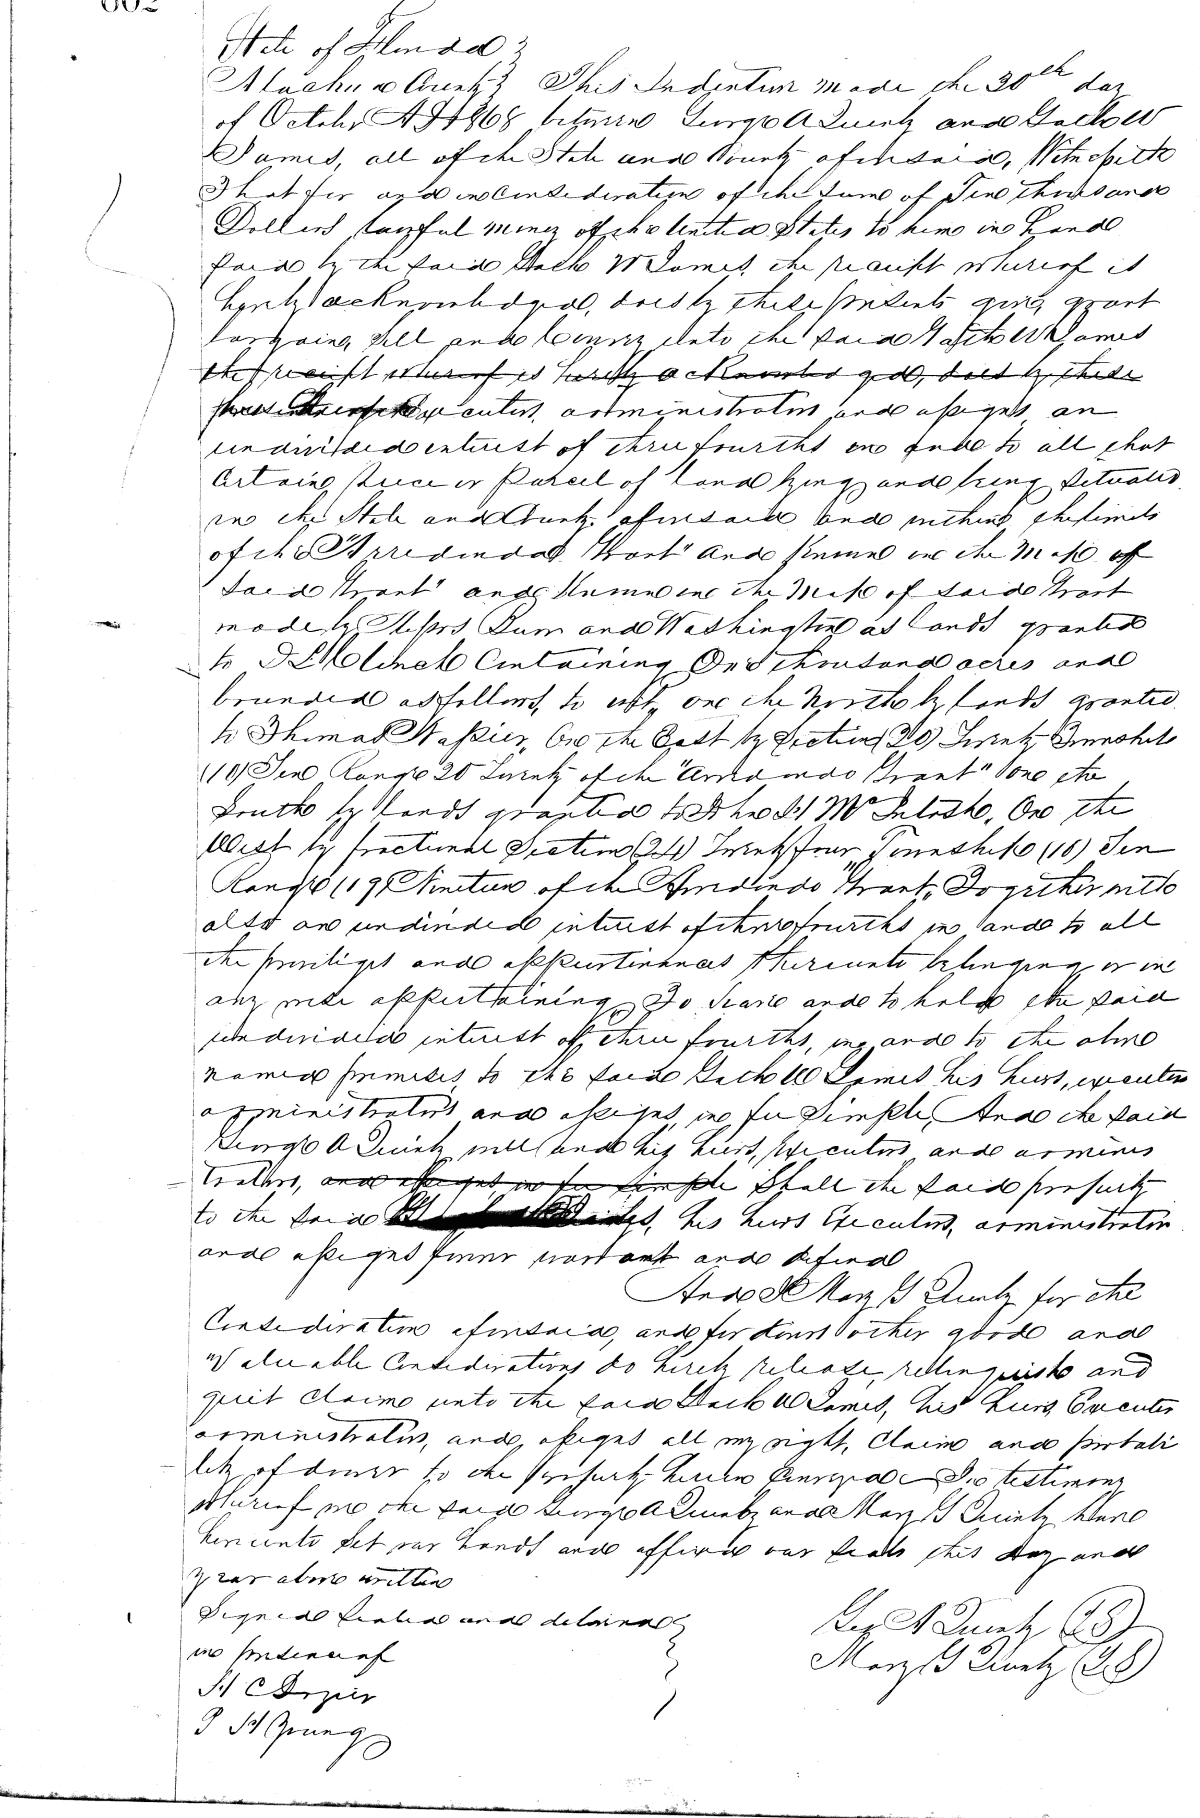 State of Florida
Alachua County This Indenture made the 30th day
of October AD 1868 between George A Zuentz and Jack W
James, all of the State and County aforesaid, Witnesseth
That for and in consideration of the sum of Ten Thousand
Dollars lawful money of the United States to him in hand
paid by the said Jack W James the receipt whereof is
hereby acknowledged, does by these presents give, grant
bargain, sell and convey unto the said Jack W James
the receipt whereof is hereby acknowledged, does by these
executors, administrators and assigns an
undivided interest of three fourths in and to all that
Certain piece or parcel of land lying and being situated
in the State and County aforesaid and within the limits
of the Arredondo Grant and Known in the Map of
said Grant and Known in the Map of said Grant
made by Messrs and Washington as lands granted
to Containing One thousand acres and
bounded as follows, to wit, on the North by lands granted
to Thomas Napier, On the East by Section (20) Twenty Township
(10) Ten Range 20 Twenty of the "Arredondo Grant" on the
South by lands granted to John H McIntosh, On the
West by fractional Section (24) Twenty four Township (10) Ten
Range (19) Nineteen of the Arredondo Grant, Together with
also an undivided interest of three fourths in and to all
the priviliges and appurtinances thereunto belonging or in
any wise appertaining To Have and to hold the said
undivided interest of three fourths, in and to the above
named premises to the said Jack W James his heirs, executors
administrators and assigns, in fee Simple, And the said
George A will and his heirs, executors and adminis
trators, and assigns in fee simple Shall the said property
to the said his heirs Executors, administrators
and assigns forever warrant and defend
And I Mary S for the
Consideration aforesaid, and for divers other good and
Valuable Considerations do hereby release, relinquish and
quit claim unto the said Jack W James, his heirs Executors
administrators, and assigns all my right, Claim and possibili
lity of dower to the property herein Conveyed In testimony
Whereof we the said George A and Mary S have
hereunto set our hands and affixed our seals this day and
year above written
Signed sealed and delivered
in presence of
Geo A (LS)
Mary S (LS)
H C Dozier
J H Young